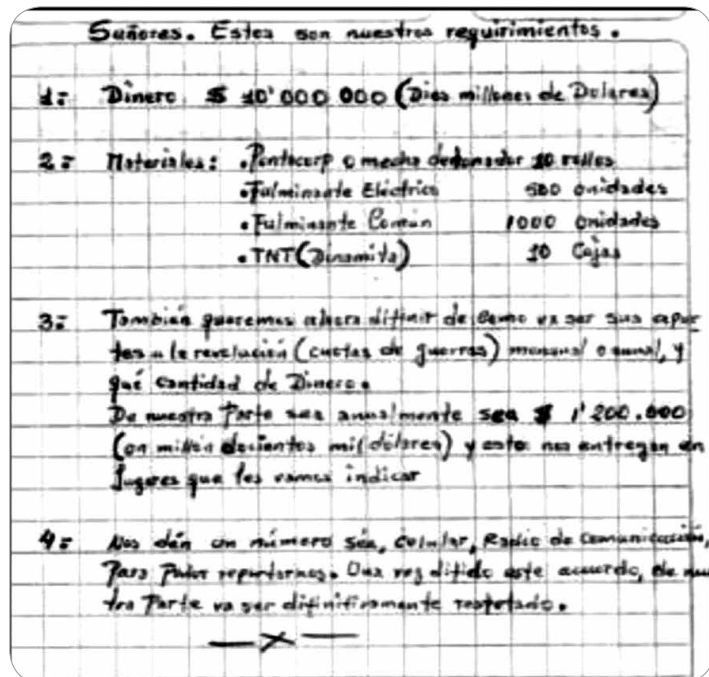 Señores. Estos son nuestros requirimientos.
1= Dinero $ 10'000 000 (Dies millones de Dolares)
2= Materiales: •Pentocorp o mecha detonador 10 rollos
•Fulminante Eléctrico 500 onidades
•Fulminante Común 1000 onidades
•TNT (Dinamita) 10 Cajas
3= También queremos ahora difinir de como va ser sus apor
tes a la revolución (cuotas de guerras) mensual o anual, y
qué cantidad de Dinero.
De nuestra Parte sea anualmente sea $ 1'200.000
(on millón docientos mil dólares) y esto nos entregan en
lugares que les vamos indicar
4= Nos dán on número séa, celular, Radio de Comunicación,
Para Poder reportarnos. Una vez difido este acuerdo, de nues
tra Parte va ser difinitivamente respetado.